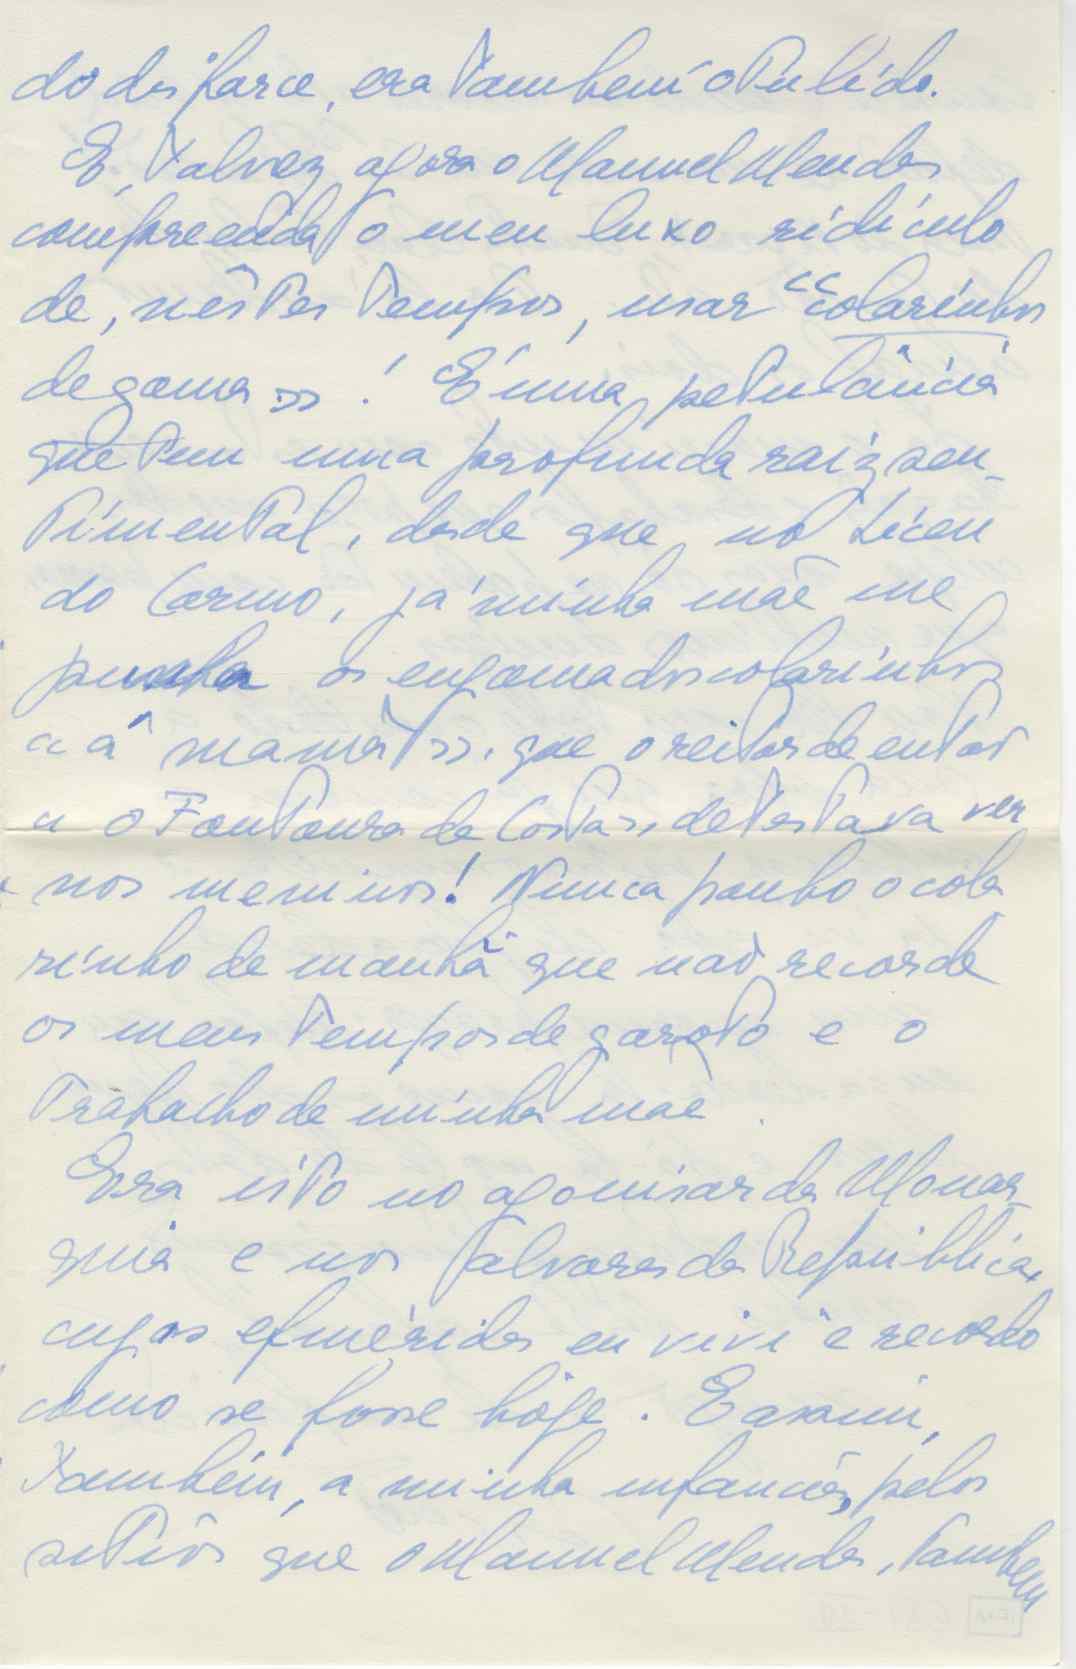 do disfarce, era também o Pulido.
E, talvez agora o Manuel Mendes
compreenda o meu luxo ridículo
de, nêstes tempos, usar "colarinhos
de goma»! É uma petulância
que tem uma profunda raiz sen-
timental, desde que, no Liceu
do Carmo, já minha mãe me
punha os engomados colarinhos
«à mamã». que o reitor de então
« o Fontoura da Costa», detestava ver
nos meninos! Nunca ponho o cola
rinho de manhã que não recorde
os meus tempos de garoto e o
trabalho de minha mãe.
Era isto no agonisar da Monar-
quia e nos alvores da República,
cujas efemérides eu vivi e recordo
como se fosse hoje. E assim,
também, a minha infancia, pelos
sitios que o Manuel Mendes, também